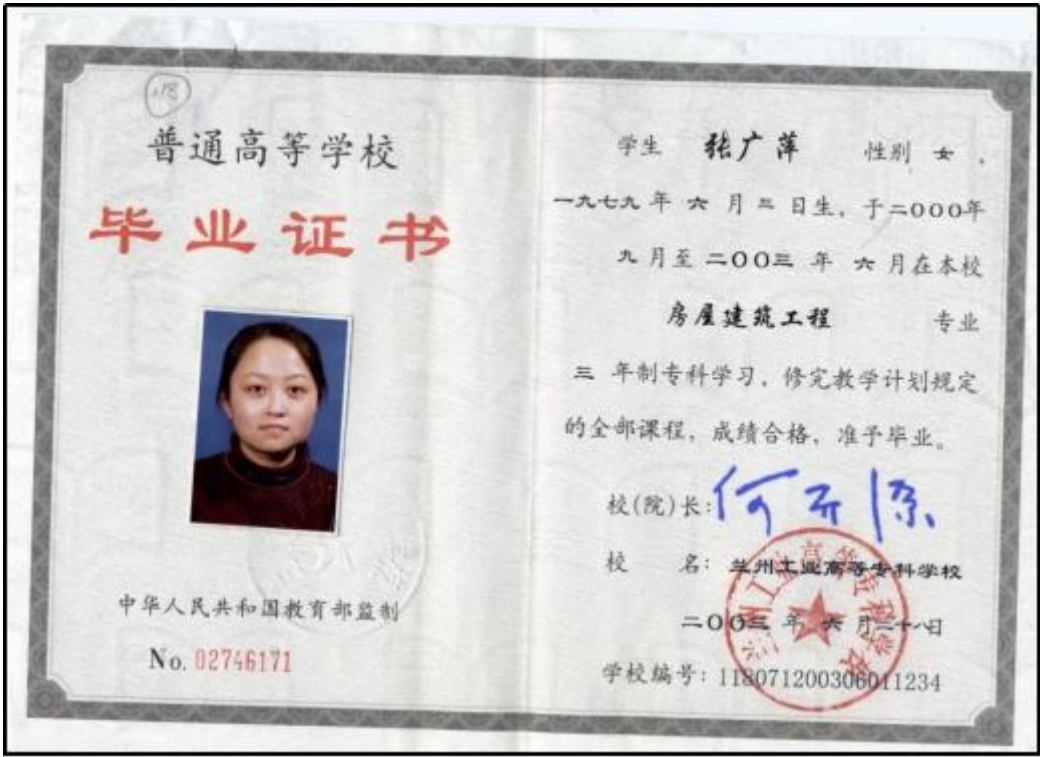 普通高等学校
毕业证书
中华人民共和国教育部监制
No. 02746171
学生 张广萍 性别 女，
一九七九年 六 月 三 日生，于二000年
九月至 二00三 年 六 月在本校
房屋建筑工程 专业
三 年制专科学习，修完教学计划规定
的全部课程，成绩合格，准予毕业。
校(院)长:
校 名: 兰州工业高等专科学校
二00三 年 六 月二十八日
学校编号: 118071200306011234
兰州工业高等专科学校